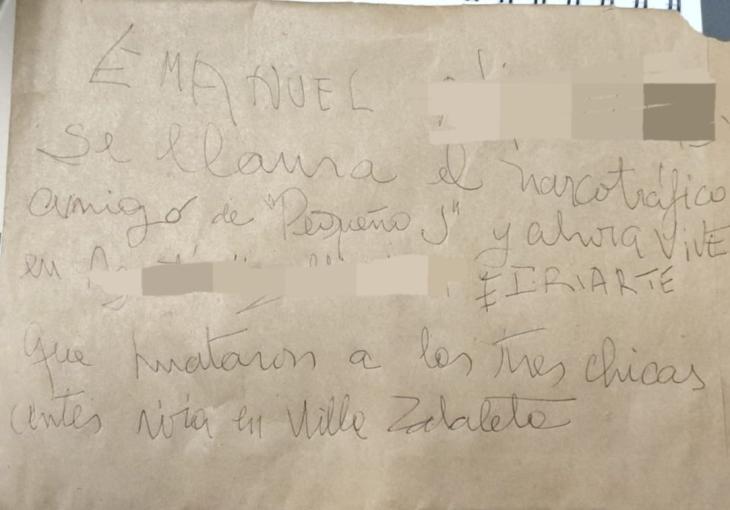 EMANUEL
Se llama el narcotráfico
amigo de "Pequeño J" y ahora VIVE
en E IRIARTE
Que mataron a las tres chicas
(antes vivía en Villa Zabaleta